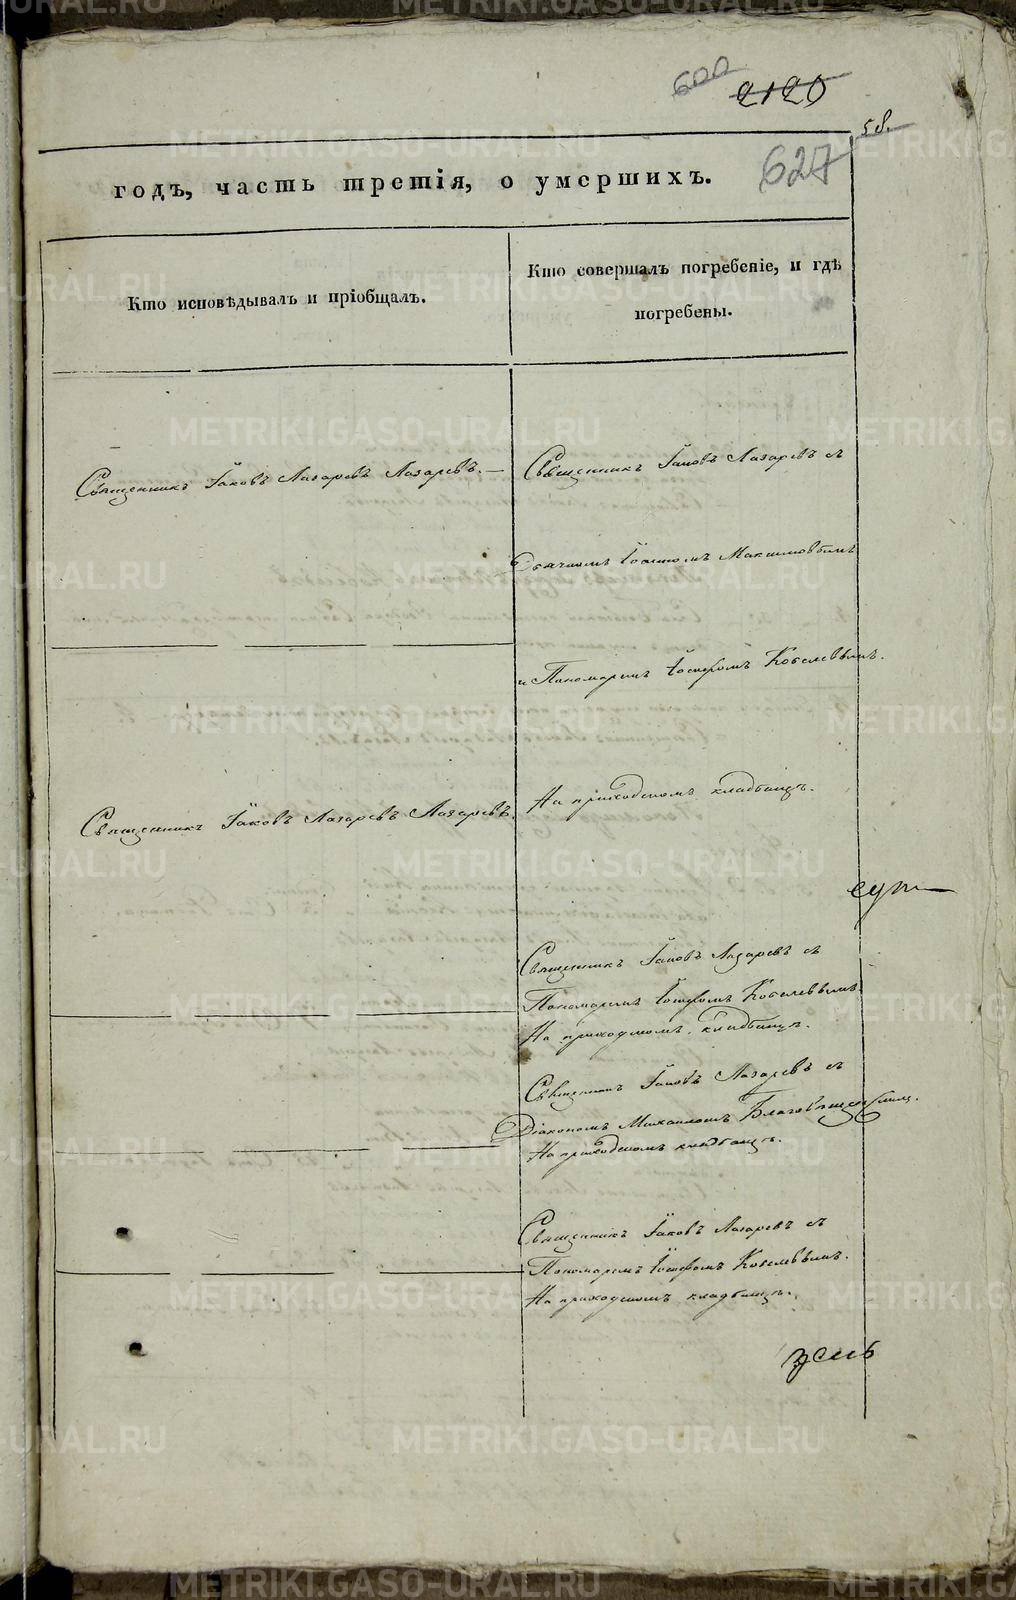 600
2120
58.
627
годъ, часть третія, о умершихъ.
Кто исповѣдывалъ и пріобщалъ.
Кто совершалъ погребеніе, и гдѣ
погребены.
Священникъ Іаковъ Лазаревъ Лазаревъ.
Священникъ Іаковъ Лазаревъ съ
Дьячкомъ Максимовымъ
и Пономаремъ Іосифомъ Кобелевымъ.
Священникъ Іаковъ Лазаревъ Лазаревъ.
На приходскомъ кладбищѣ.
Священникъ Іаковъ Лазаревъ съ
Пономаремъ Іосифомъ Кобелевымъ
На приходскомъ кладбищѣ.
Священникъ Іаковъ Лазаревъ съ
Діакономъ Михаиломъ Благовѣщенскимъ.
На приходскомъ кладбищѣ.
Священникъ Іаковъ Лазаревъ съ
Пономаремъ Іосифомъ Кобелевымъ.
На приходскомъ кладбищѣ.
METRIKI.GASO-URAL.RU